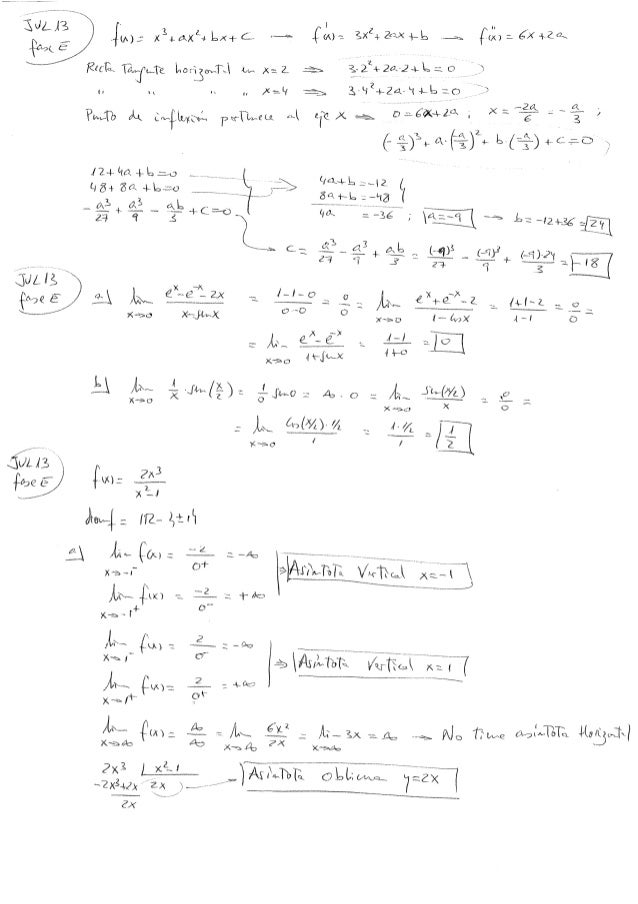 JUL 13
fase E
f(x) = x³+ax²+bx+c → f'(x) = 3x²+2ax+b → f''(x) = 6x+2a
Recta Tangente horizontal en x=2 ⇒ 3·2²+2a·2+b=0
" " " " x=4 ⇒ 3·4²+2a·4+b=0
Punto de inflexión pertenece al eje X ⇒ 0=6x+2a ; x = -2a/6 = -a/3 ;
(-a/3)³ + a·(-a/3)² + b(-a/3) + c = 0
12+4a+b=0
48+8a+b=0
-a³/27 + a³/9 - ab/3 + c=0
4a+b=-12
8a+b=-48
4a = -36 ; a=-9 → b=-12+36=24
c = a³/27 - a³/9 + ab/3 = (-9)³/27 - (-9)³/9 + (-9)·24/3 = -18
JUL 13
fase E
a) lim x→0 (eˣ-e⁻ˣ-2x)/(x-senx) = (1-1-0)/(0-0) = 0/0 = lim x→0 (eˣ+e⁻ˣ-2)/(1-cosx) = (1+1-2)/(1-1) = 0/0 =
= lim x→0 (eˣ-e⁻ˣ)/(1+senx) = (1-1)/(1+0) = 0
b) lim x→0 1/x · sen(x/2) = 1/0 sen0 = ∞·0 = lim x→0 sen(x/2)/x = 0/0 =
= lim x→0 cos(x/2)·1/2 / 1 = 1·1/2 / 1 = 1/2
JUL 13
fase E
f(x) = 2x³/(x²-1)
domf = IR-{±1}
a) lim x→-1⁻ f(x) = -2/0⁺ = -∞
lim x→-1⁺ f(x) = -2/0⁻ = +∞
⇒ Asíntota Vertical x=-1
lim x→1⁻ f(x) = 2/0⁻ = -∞
lim x→1⁺ f(x) = 2/0⁺ = +∞
⇒ Asíntota Vertical x=1
lim x→∞ f(x) = ∞/∞ = lim x→∞ 6x²/2x = lim x→∞ 3x = ∞ → No tiene asíntota Horizontal
2x³ | x²-1
-2x³+2x 2x → Asíntota oblicua y=2x
2x